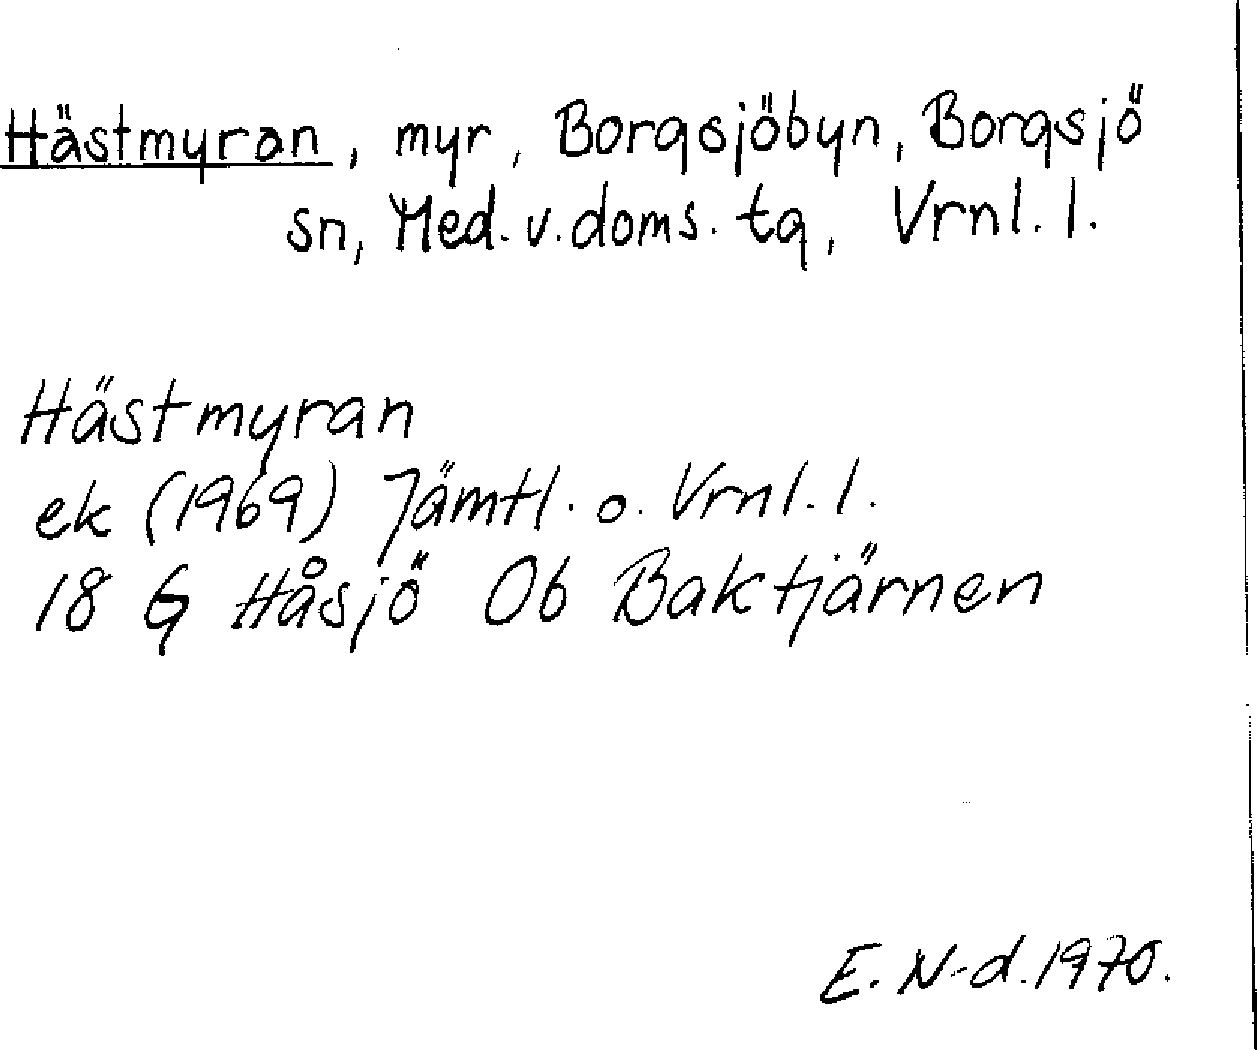 Hästmyran, myr, Borgsjöbyn, Borgsjö
sn, Med. v. doms. tg, Vrnl. l.
Hästmyran
ek (1969) Jämtl. o. Vrnl. l.
18 G Håsjö 0b Baktjärnen
E. N-d. 1970.